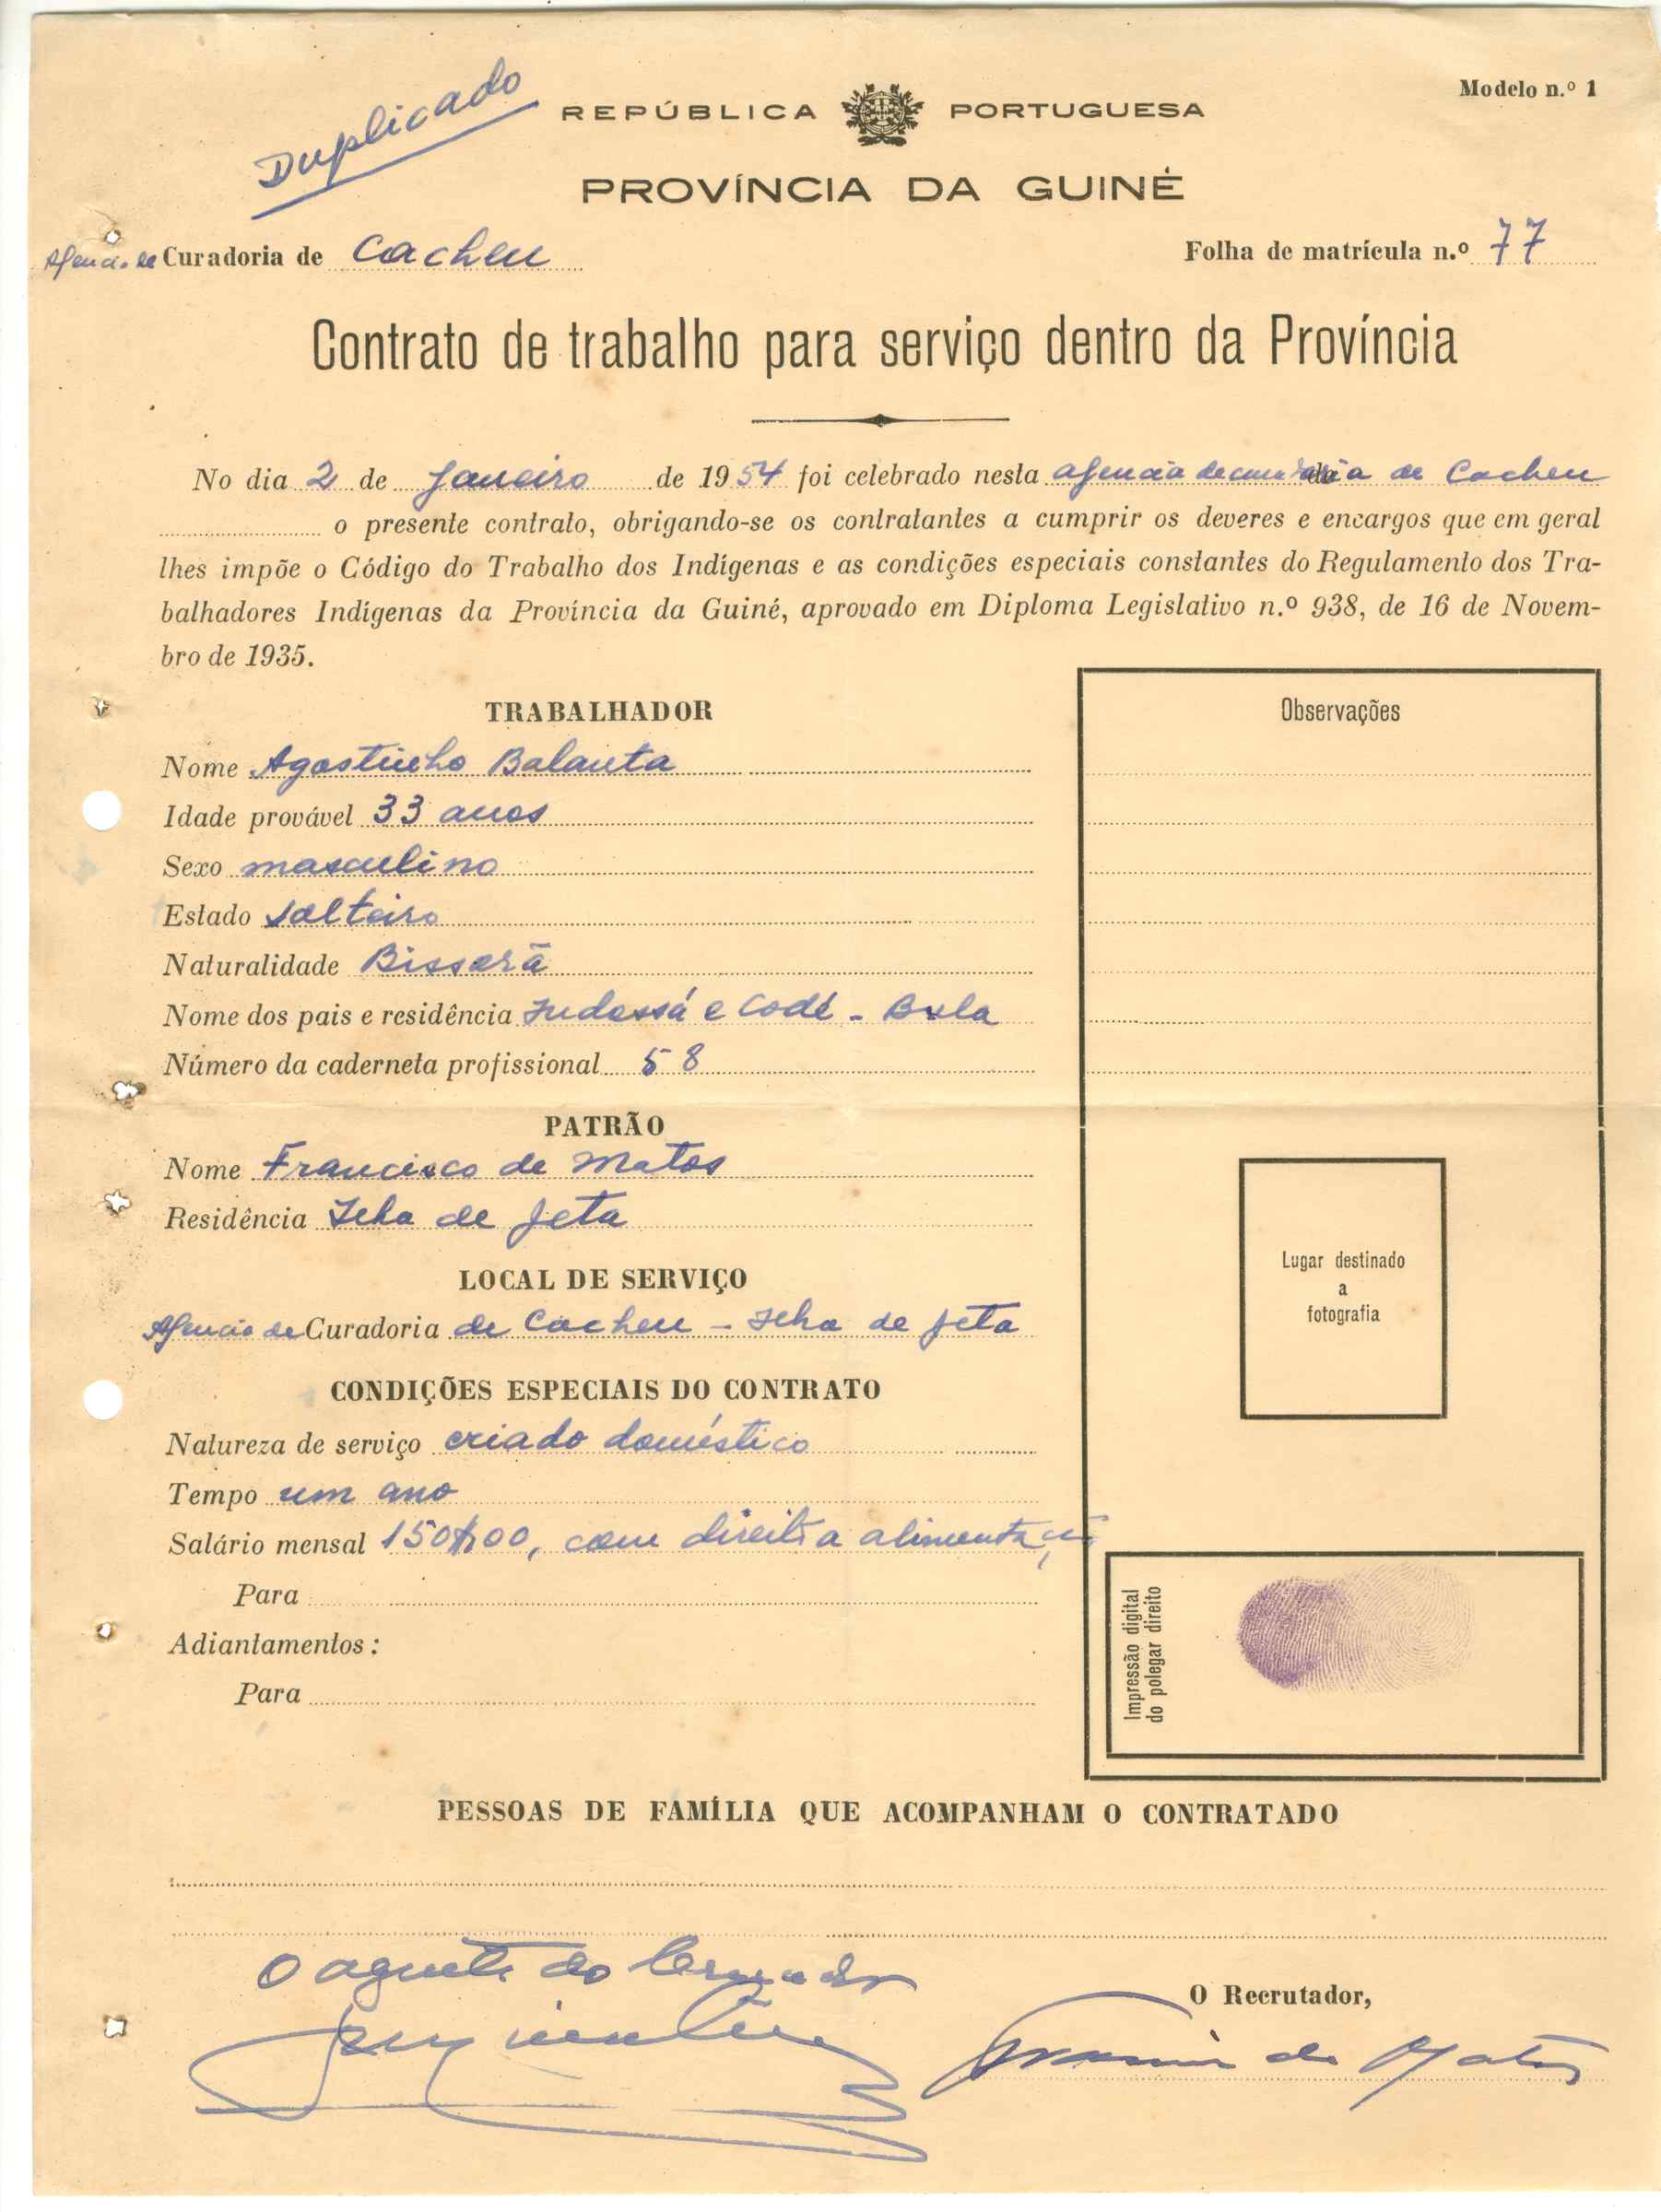 Duplicado
Modelo n.º 1
REPÚBLICA PORTUGUESA
PROVÍNCIA DA GUINÉ
Agencia de Curadoria de Cacheu
Folha de matrícula n.º 77
Contrato de trabalho para serviço dentro da Província
No dia 2 de Janeiro de 1954 foi celebrado nesta agencia de curadoria de Cacheu
o presente contrato, obrigando-se os contratantes a cumprir os deveres e encargos que em geral
lhes impõe o Código do Trabalho dos Indígenas e as condições especiais constantes do Regulamento dos Tra-
balhadores Indígenas da Província da Guiné, aprovado em Diploma Legislativo n.º 938, de 16 de Novem-
bro de 1935.
TRABALHADOR
Nome Agostinho Balanta
Idade provável 33 anos
Sexo masculino
Estado solteiro
Naturalidade Bissorã
Nome dos pais e residência e Codé - Bula
Número da caderneta profissional 58
PATRÃO
Nome Francisco de Matos
Residência Ilha de Jeta
LOCAL DE SERVIÇO
Agencia de Curadoria de Cacheu - Ilha de Jeta
CONDIÇÕES ESPECIAIS DO CONTRATO
Natureza de serviço criado doméstico
Tempo um ano
Salário mensal 150$00, com direito a alimentação
Para
Adiantamentos:
Para
Observações
Lugar destinado
a
fotografia
Impressão digital
do polegar direito
PESSOAS DE FAMÍLIA QUE ACOMPANHAM O CONTRATADO
O agente do Curador
O Recrutador,
Francisco de Matos